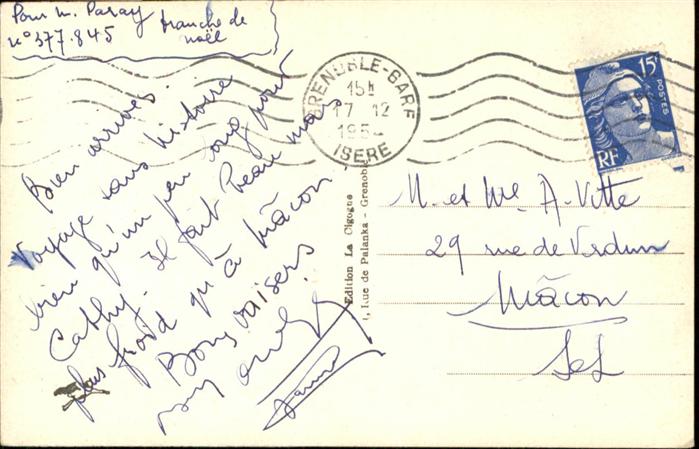 Pour M. Paray tranche de
n° 377.845 noël
GRENOBLE-GARE
15H
17 - 12
195
ISERE
15F
POSTES
RF
Bien arrivés.
Voyage sans histoire
bien qu'un peu long pour
Cathy. Il fait beau mais
plus froid qu'à Mâcon.
Bons baisers
Edition La Cigogne
1, Rue de Palanka - Grenoble
M. et Me A. Vitte
29 rue de Verdun
Mâcon
S et L